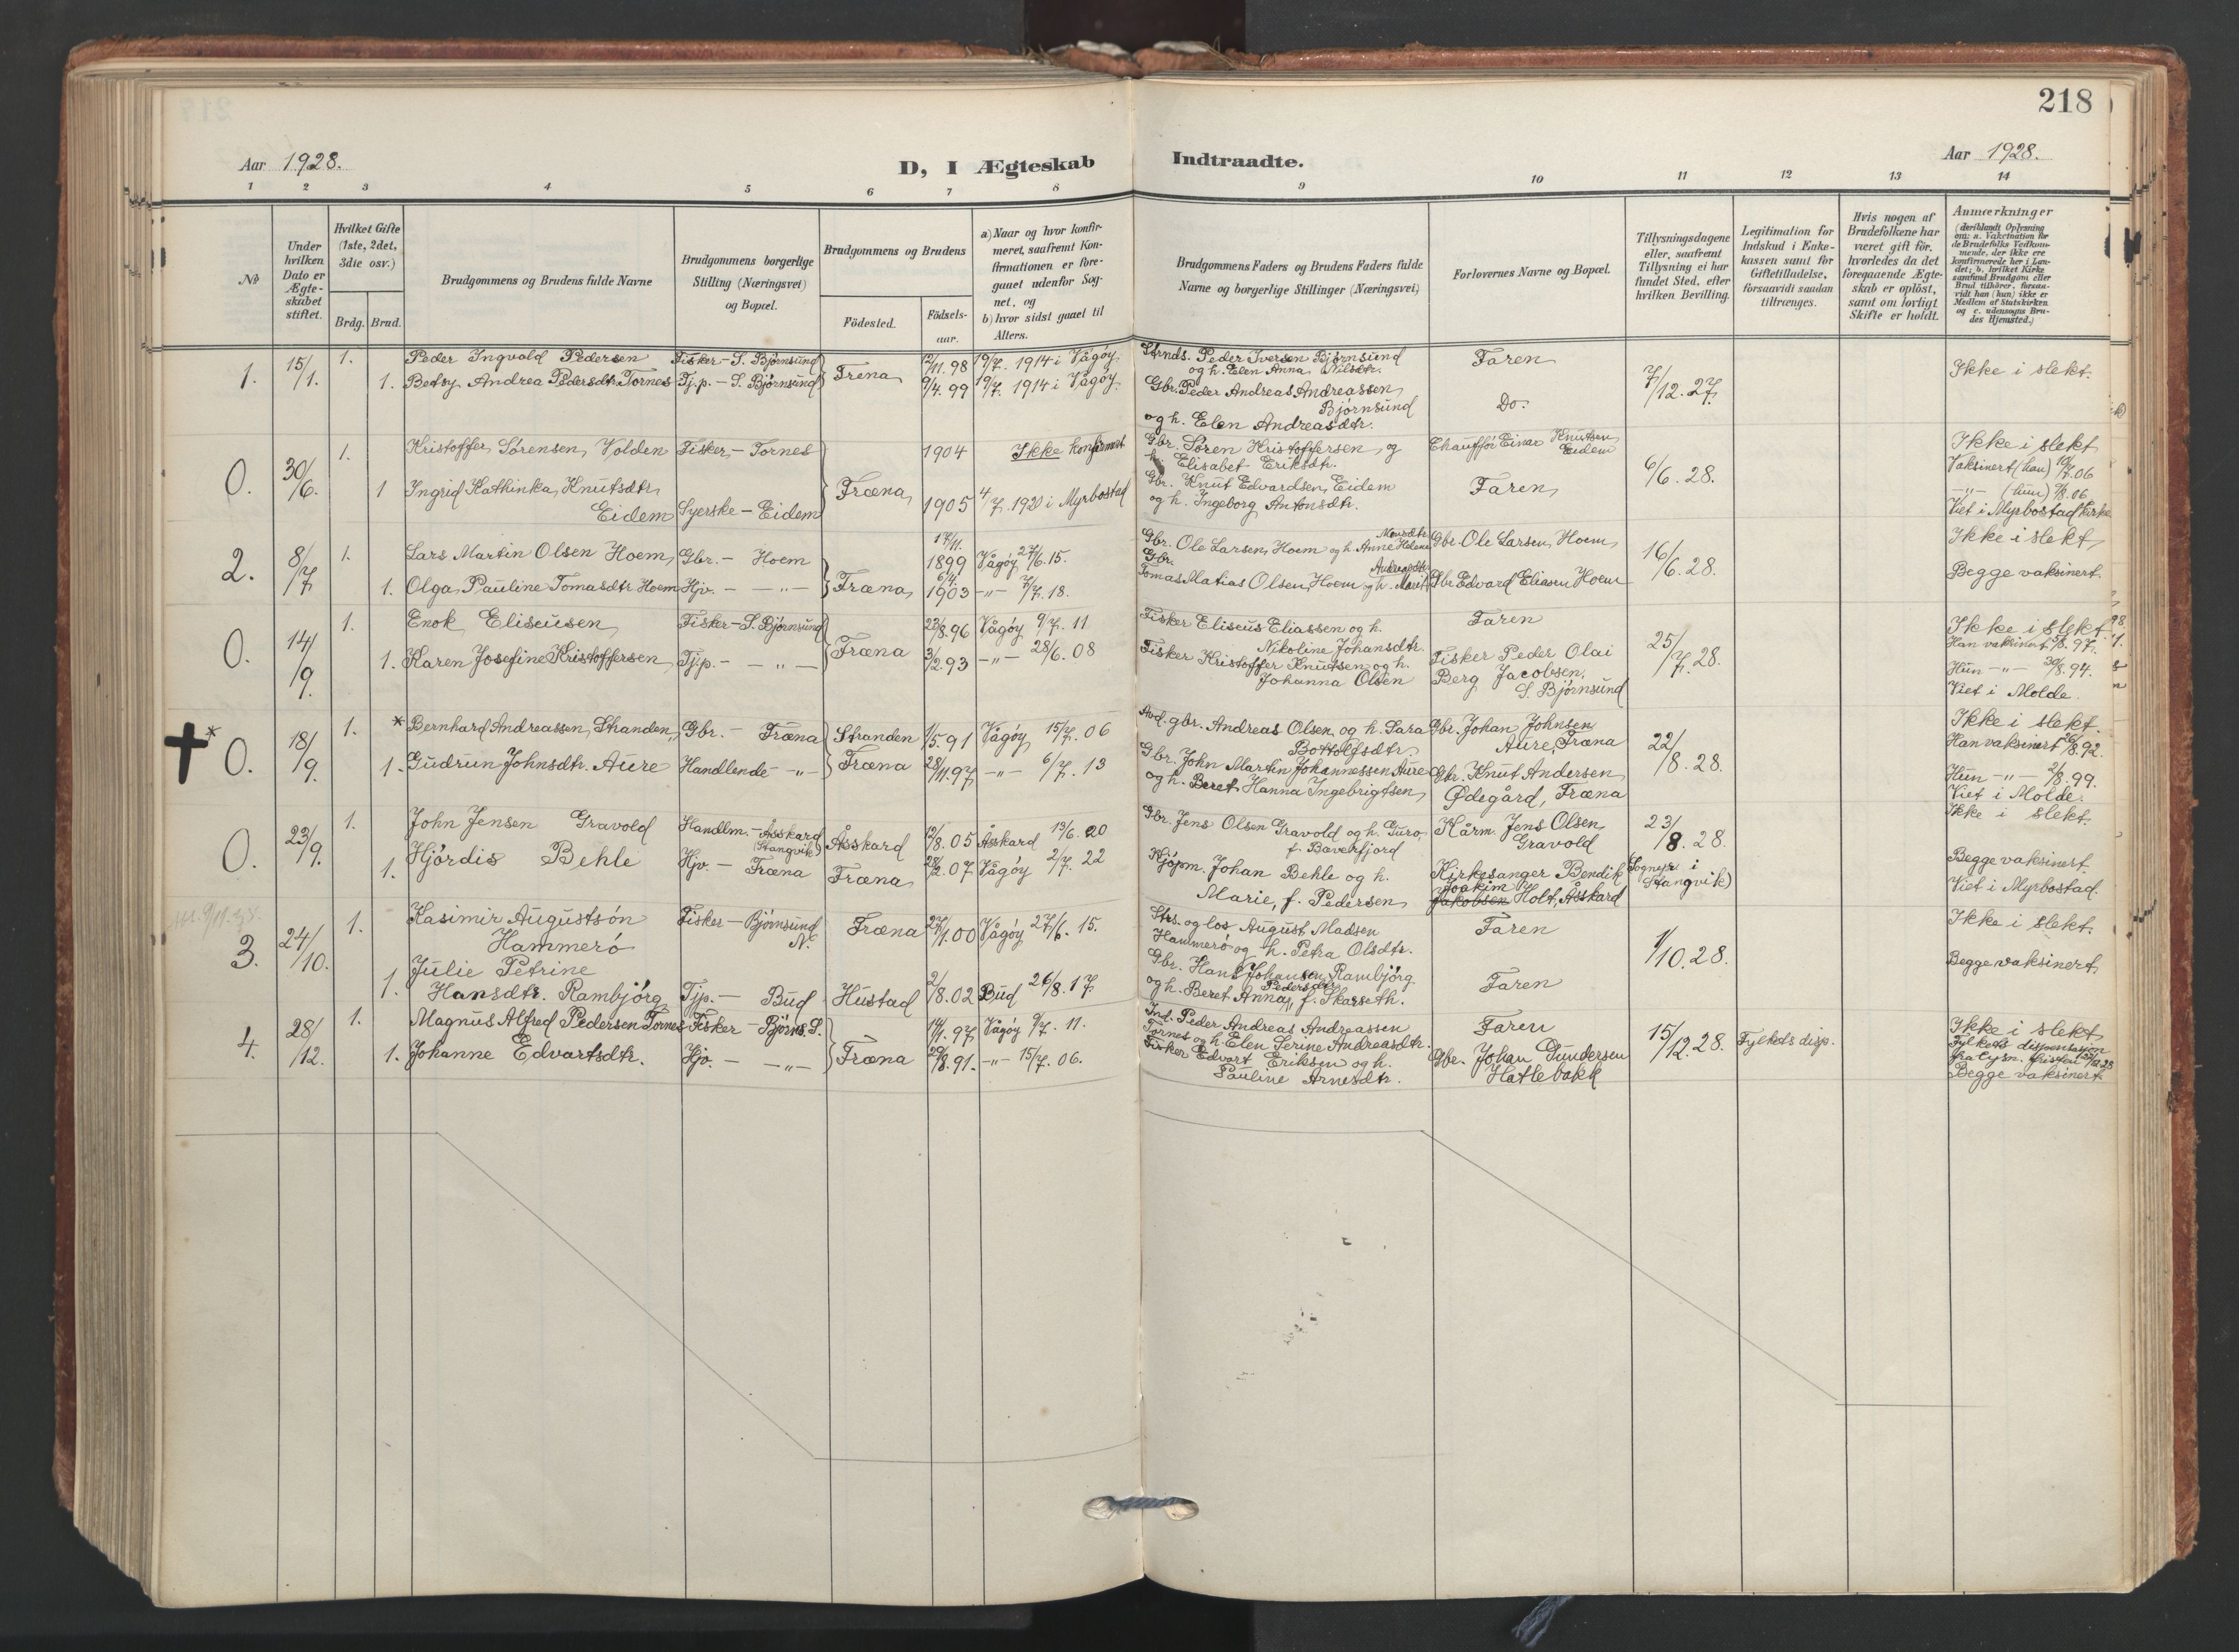 218
Aar 1928.
D, I Ægteskab Indtraadte.
Aar 1928.
1 2 3 4 5 6 7 8 9 10 11 12 13 14
№
Under hvilken Dato er Ægteskabet stiftet.
Hvilket Gifte (1ste, 2det, 3die osv.)
Brdg. Brud.
Brudgommens og Brudens fulde Navne
Brudgommens borgerlige Stilling (Næringsvei) og Bopæl.
Brudgommens og Brudens
Fødested.
Fødselsaar.
a) Naar og hvor konfirmeret, saafremt Konfirmationen er foregaaet udenfor Sognet, og
b) hvor sidst gaaet til Alters.
Brudgommens Faders og Brudens Faders fulde Navne og borgerlige Stillinger (Næringsvei)
Forlovernes Navne og Bopæl.
Tillysningsdagene eller, saafremt Tillysning ei har fundet Sted, efter hvilken Bevilling.
Legitimation for Indskud i Enkekassen samt for Giftetilladelse, forsaavidt saadan tiltrænges.
Hvis nogen af Brudefolkene har været gift før, hvorledes da det foregaaende Ægteskab er opløst, samt om lovligt Skifte er holdt.
Anmærkninger (deriblandt Oplysning om: a. Vakcination for de Brudefolks Vedkommende, der ikke ere konfirmerede her i Landet; b. hvilket Kirkesamfund Brudgom eller Brud tilhører, forsaavidt han (hun) ikke er Medlem af Statskirken og c. udensogns Brudes Hjemsted.)
1. 15/1. 1. Peder Ingvald Pedersen Fisker - S. Bjørnsund Frena 12/11.98 19/7. 1914 i Vågøy
1. Betsy Andrea Pedersdtr. Tornes Tj.p. - S. Bjørnsund 9/4.99 19/7. 1914 i Vågøy.
Strnds. Peder Iversen Bjørnsund
og h. Elen Anna Nilsdtr.
Faren
Gbr. Peder Andreas Andreassen
Bjørnsund
og h. Elen Andreasdtr.
Do.
7/12.27.
Ikke i slekt.
0. 30/6. 1. Kristoffer Sørensen Volden Fisker - Tornes Fræna 1904 Ikke konfirmert
1 Ingrid Kathinka Knutsdtr.
Eidem Syerske - Eidem 1905 4/7. 1920 i Myrbostad
Gbr. Søren Kristoffersen og
h. Elisabet Eriksdtr.
Chauffør Einar Knutsen
Eidem
Gbr. Knut Edvardsen Eidem
og h. Ingeborg Antonsdtr.
Faren
6/6.28.
Ikke i slekt
Vaksinert (han) 06
-"- (hun) 06
Viet i Myrbostad kirke
2. 8/7 1. Lars Martin Olsen Hoem Gbr. - Hoem Fræna 17/11. 1899 Vågøy 27/6.15.
1. Olga Pauline Tomasdtr. Hoem Hjv. - -"- 6/4. 1903 -"- 7/7.18.
Gbr. Ole Larsen Hoem og h. Anne Helene Monsdtr.
Gbr. Ole Larsen Hoem
Gbr.
Tomas Matias Olsen Hoem og h. Marit Andreasdtr.
Gbr. Edvard Eliasen Hoem
16/6.28.
Ikke i slekt
Begge vaksinert
0. 14/9. 1. Enok Eliseusen Fisker - S. Bjørnsund Fræna 23/8.96 Vågøy 9/7.11
1. Karen Josefine Kristoffersen Tj.p. - -"- 3/2.93 -"- 28/6.08
Fisker Eliseus Eliassen og h.
Nikoline Johansdtr.
Faren
Fisker Kristoffer Knutsen og h.
Johanna Olsen
Fisker Peder Olai
Berg Jacobsen,
S. Bjørnsund
25/7.28.
Ikke i slekt.
Han vaksinert 97.
Hun -"- 30/8.94.
Viet i Molde.
* 0. 18/9. 1. * Bernhard Andreassen Stranden Gbr. - Fræna Stranden 1/5.91 Vågøy 15/7.06
1. Gudrun Johnsdtr. Aure Handlende -"- Fræna 28/11.97 -"- 6/7.13
Avd. gbr. Andreas Olsen og h. Sara
Bottolfsdtr.
Gbr. Johan Johnsen
Aure, Fræna
Gbr. John Martin Johannessen Aure
og h. Beret Hanna Ingebrigtsen
Gbr. Knut Andersen
Ødegård, Fræna
22/8.28.
Ikke i slekt.
Han vaksinert 26/8.92.
Hun -"- 2/8.99.
Viet i Molde.
0. 23/9. 1. John Jensen Gravold Handlm. - Åsskard
(Stangvik) Åsskard 12/8.05 Åsskard 13/6.20
1. Hjördis Behle Hjv. - Fræna Fræna 28/2.07 Vågøy 2/7.22
Gbr. Jens Olsen Gravold og h. Guro,
f. Bæverfjord
Kårm. Jens Olsen
Gravold
Kjøpm. Johan Behle og h.
Marie, f. Pedersen
Kirkesanger Bendik
Joakim
Jakobsen Holt, Åsskard
23/8.28.
(Sognepr. i
Stangvik)
Ikke i slekt.
Begge vaksinert.
Viet i Myrbostad.
3. 24/10. 1. Kasimir Augustsön
Hammerö Fisker - Bjørnsund
N. Fræna 27/1.00 Vågøy 27/6.15.
1. Julie Petrine
Hansdtr. Rambjörg Tjp. - Bud Hustad 2/8.02 Bud 26/8.17
Strs. og los August Madsen
Hammerö og h. Petra Olsdtr.
Faren
Gbr. Hans Johansen Rambjörg
og h. Beret Anna Pedersdtr., f. Skarseth.
Faren
1/10.28.
Ikke i slekt.
Begge vaksinert
4. 28/12. 1. Magnus Alfred Pedersen Tornes Fisker - Bjørns. S. Fræna 14/1.97 Vågøy 9/7.11.
1. Johanne Edvartsdtr. Hjv. - -"- 29/8.91. -"- 15/7.06.
Ind. Peder Andreas Andreassen
Tornes og h. Elen Serine Andreasdtr.
Faren
Fisker Edvart Eriksen og h.
Pauline Arnesdtr.
Gbr. Johan Gundersen
Hatlebakk
15/12.28.
Fylkets disp.
Ikke i slekt
Fylkets dispensasjon
fra lysn. fristen
Begge vaksinert.